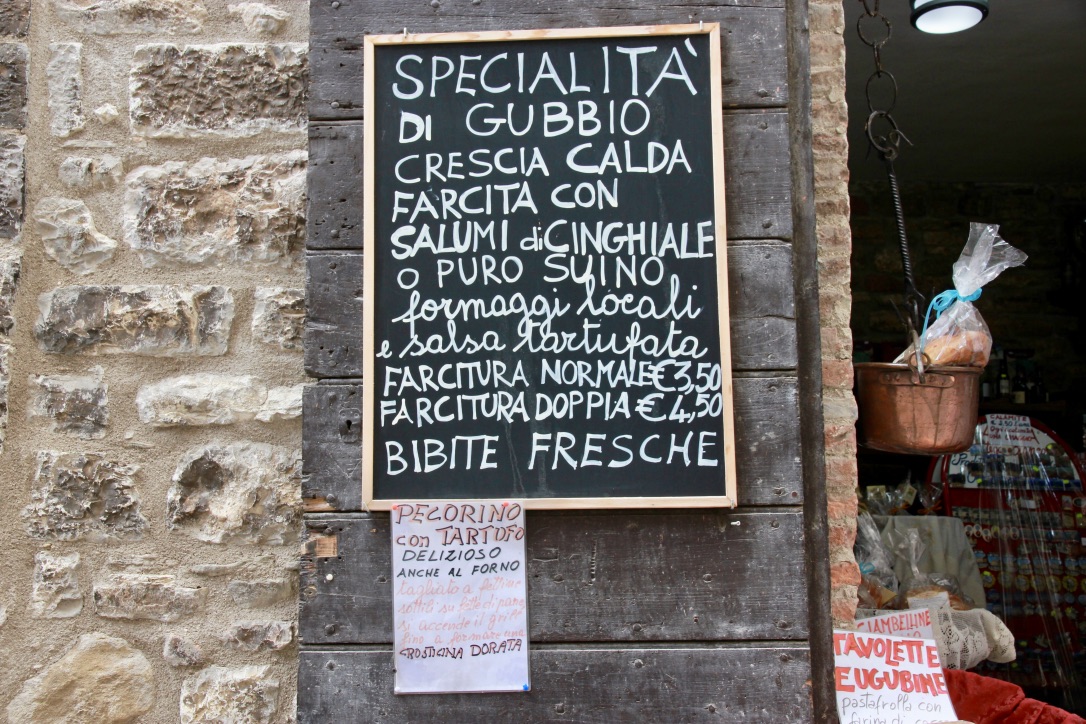 SPECIALITÀ
DI GUBBIO
CRESCIA CALDA
FARCITA CON
SALUMI di CINGHIALE
O PURO SUINO
formaggi locali
e salsa tartufata
FARCITURA NORMALE € 3,50
FARCITURA DOPPIA € 4,50
BIBITE FRESCHE
PECORINO
con TARTUFO
DELIZIOSO
ANCHE AL FORNO
tagliato a fettine
sottili su fette di pane
si accende il grill
fino a formare una
CROSTICINA DORATA
CIAMBELLINE
TAVOLETTE
EUGUBINE
pastafrolla con